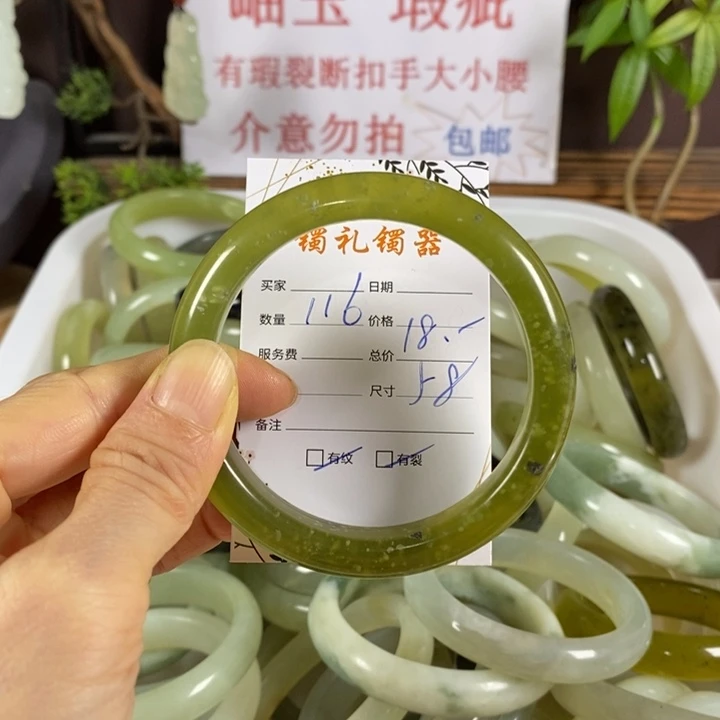 岫玉 瑕疵
有瑕裂断扣手大小腰
介意勿拍 包邮
镯礼镯器
买家 日期
数量 116 价格 18.-
服务费 总价
尺寸 58
备注
□有纹 □有裂